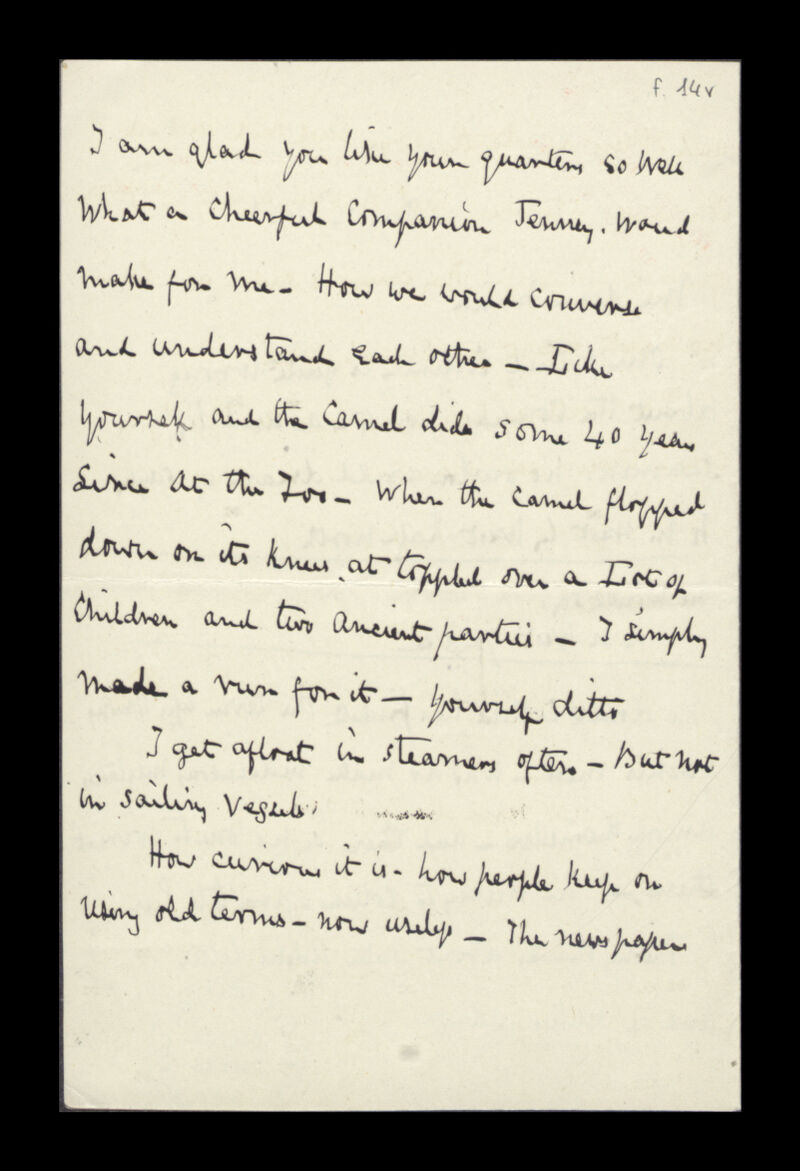 f. 14v
I am glad you like your quarters so well
What a Cheerful Companion Jenney. Would
make for me - How we would converse
and understand Each other - Like
yourself and the Camel did some 40 years
Since At the Zoo - When the Camel flopped
down on its knees, at toppled over a Lot of
Children and two Ancient parties - I simply
made a run for it - yourself ditto
I get afloat in steamers often - But not
in sailing Vessels
How curious it is - how people keep on
Using old terms - now useless - The newspapers